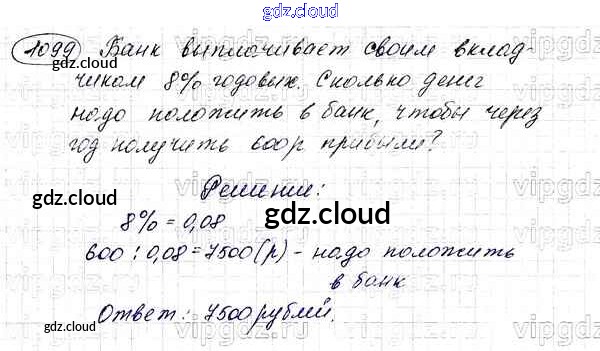 gdz.cloud
1099 Банк выплачивает своим вклад-
чикам 8% годовых. Сколько денег
надо положить в банк, чтобы через
год получить 600р прибыли?
Решение:
8% = 0,08
600 : 0,08 = 7500 (р) - надо положить
в банк
Ответ: 7500 рублей.
gdz.cloud
gdz.cloud
gdz.cloud
gdz.cloud
gdz.cloud